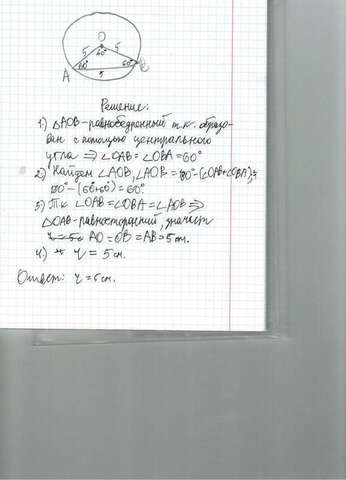 O
5 60° 5
A 60° 60° B
5
Решение:
1) ΔAOB-равнобедренный т.к. образо-
ван с помощью центрального
угла ⇒ ∠OAB = ∠OBA = 60°
2) Найдем ∠AOB, ∠AOB = 180°-(∠OAB+∠OBA)=
180°-(60+60)=60°.
3) Т.к ∠OAB=∠OBA=∠AOB ⇒
ΔOAB-равносторонний, значит
AO=OB=AB=5см.
4) r = 5см.
Ответ: r=5см.